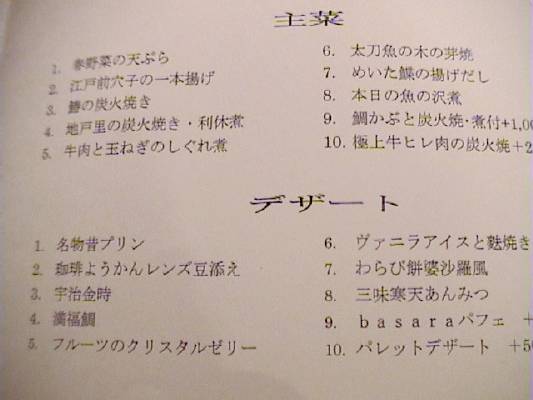 主菜
1. 春野菜の天ぷら
2. 江戸前穴子の一本揚げ
3. 鰆の炭火焼き
4. 地戸里の炭火焼き・利休煮
5. 牛肉と玉ねぎのしぐれ煮
6. 太刀魚の木の芽焼
7. めいた鰈の揚げだし
8. 本日の魚の沢煮
9. 鯛かぶと炭火焼・煮付+1,00
10. 極上牛ヒレ肉の炭火焼+2
デザート
1. 名物昔プリン
2. 珈琲ようかんレンズ豆添え
3. 宇治金時
4. 満福鯛
5. フルーツのクリスタルゼリー
6. ヴァニラアイスと麩焼き
7. わらび餅婆沙羅風
8. 三味寒天あんみつ
9. basaraパフェ +
10. パレットデザート +50